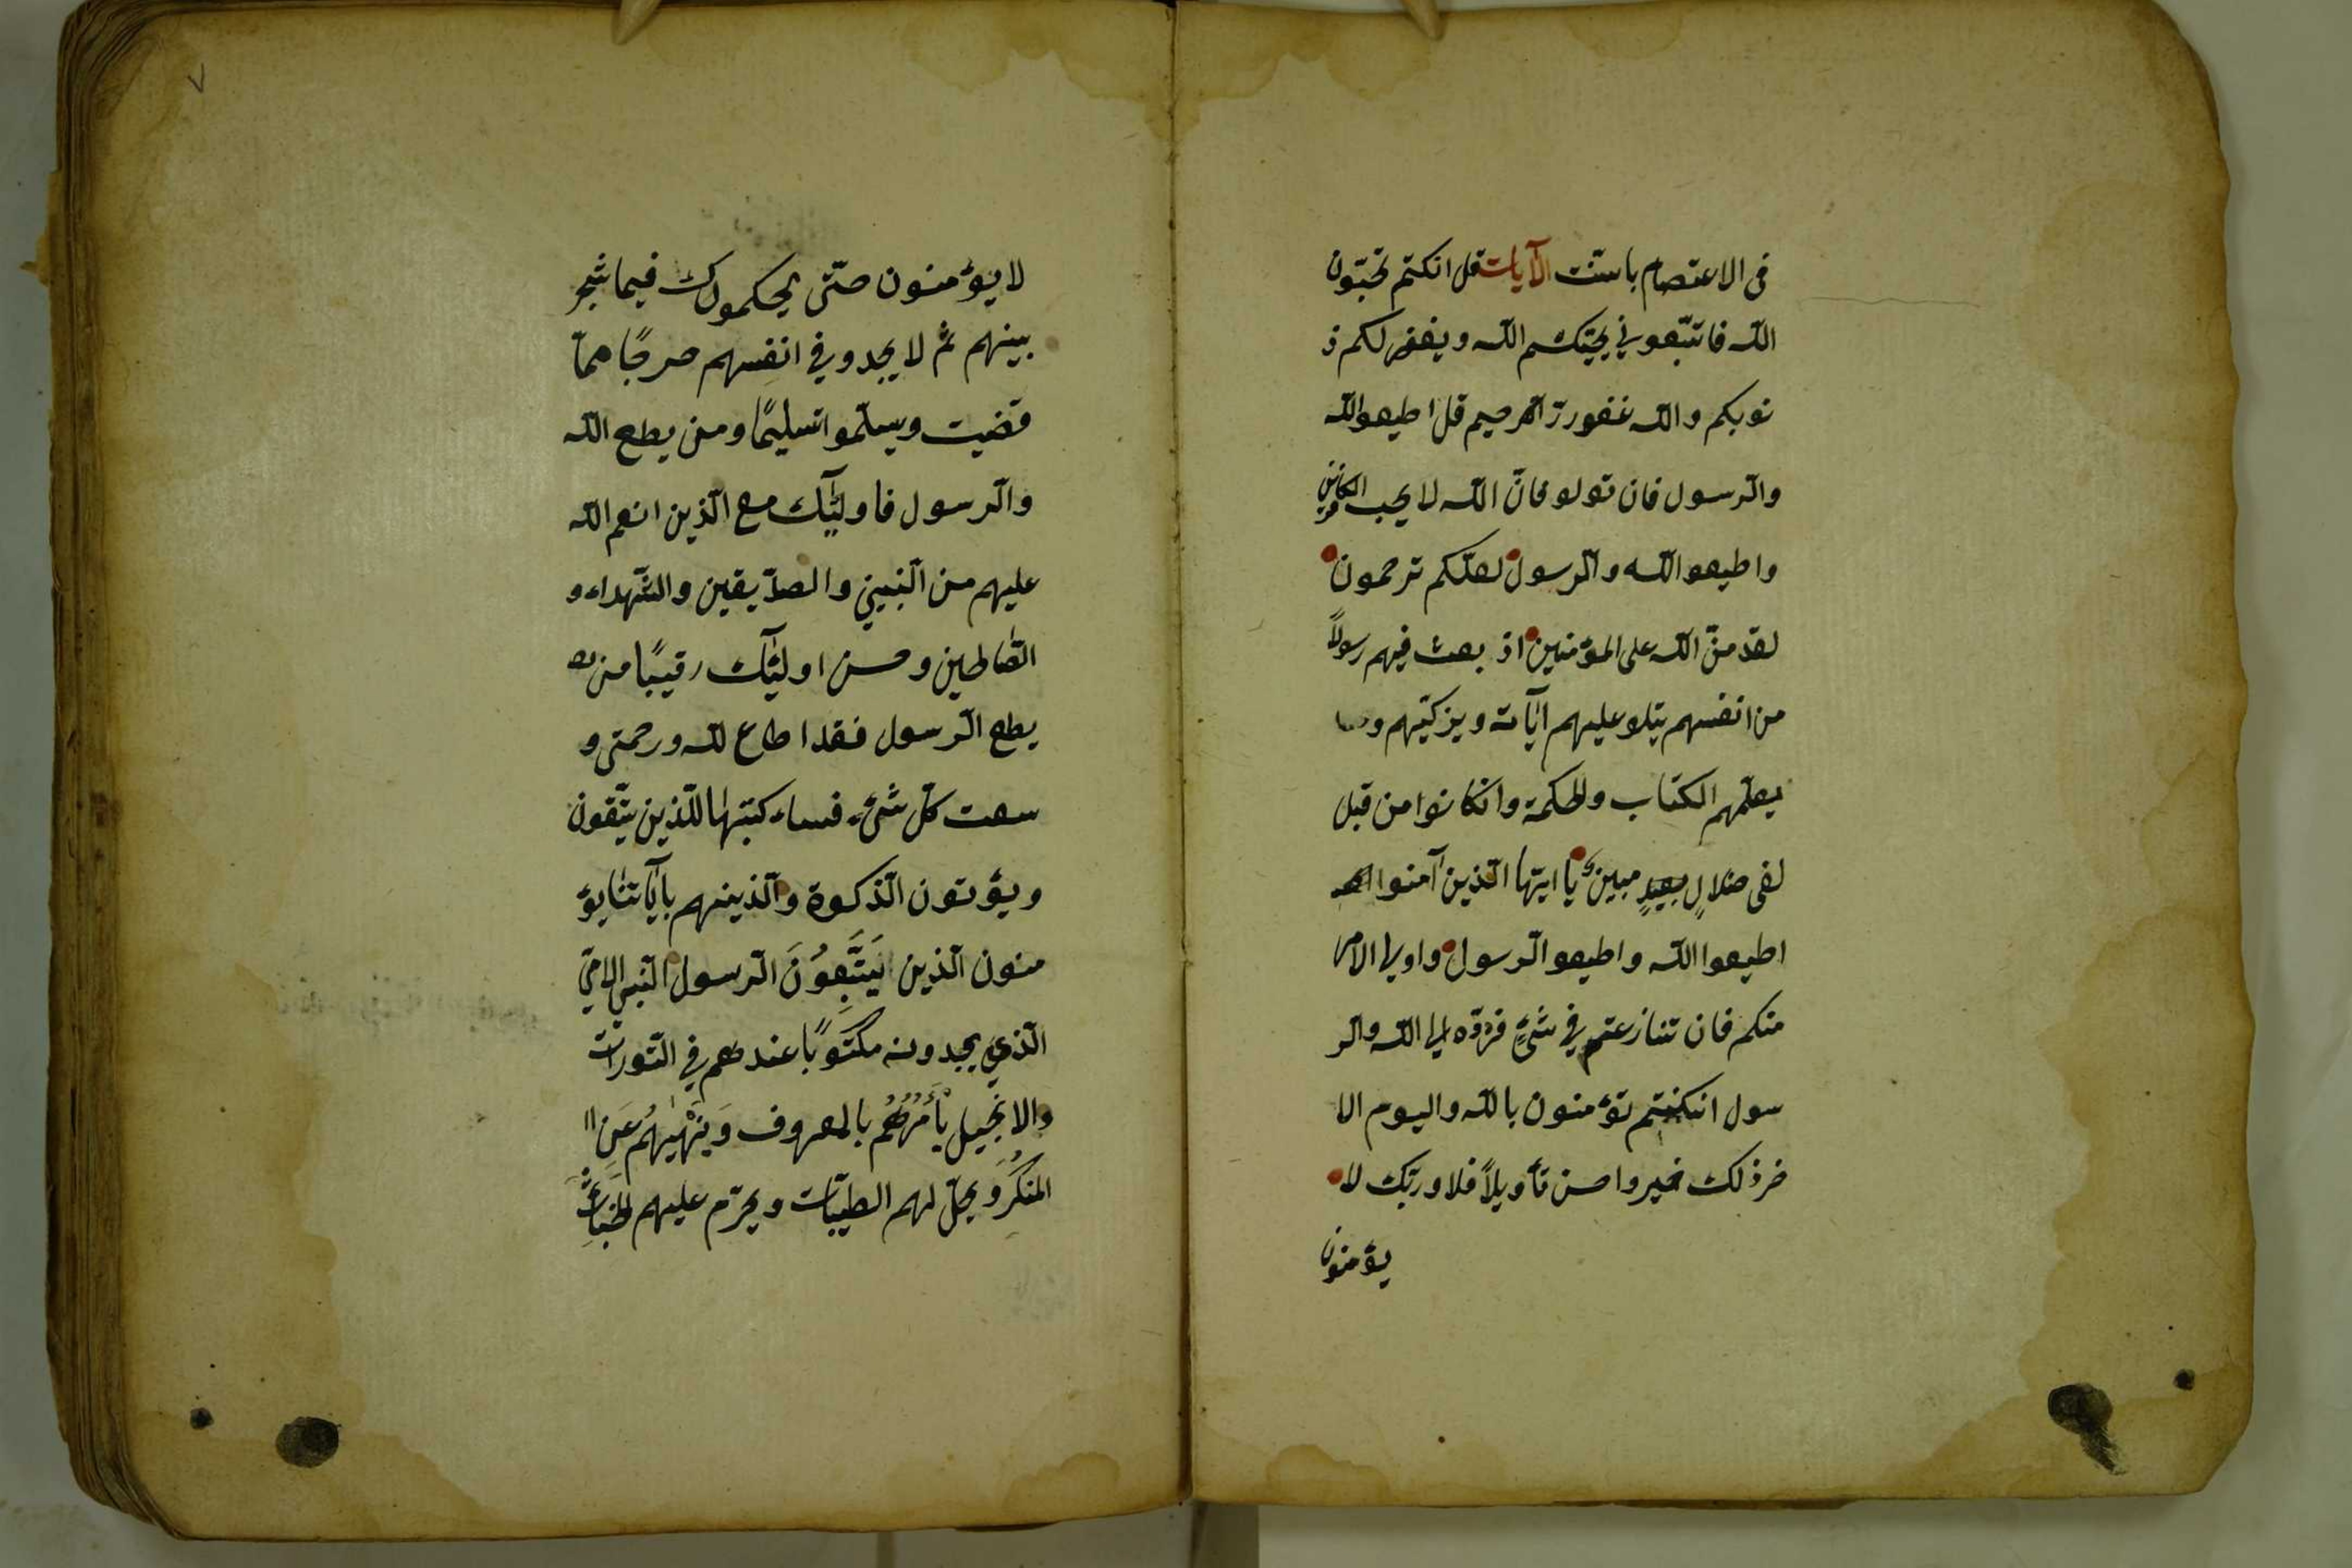 فى الاعتصام باستنت الآيات قل انكتم تحبّون
اللّه فاتتبّعونى يحببكم اللّه ويغفر لكم ذ
نوبكم واللّه غفور رّالرحيم قل اطيعواللّه
والرّسول فان تولو فانّ اللّه لا يحب الكافرين
واطيعواللّه والرّسول لعلّكم ترحمون
لقد منّ اللّه على المؤمنين اذ بعث فيهم رسولاً
من انفسهم يتلو عليهم آياته ويزكيّهم و
يعلّمهم الكتاب والحكمة وانكانوا من قبل
لفى ضلالٍ بعيدٍ مبين يا ايّها الّذين آمنوا
اطيعوا اللّه واطيعوالرّسول واولى الامر
منكم فان تنازعتم فى شئٍ فردّوه الى اللّه والر
سول انكنتم تؤمنون باللّه واليوم الا
خر ذلك خير واحسن تأويلاً فلا وربّك لا
يؤمنون
لا يؤمنون حتّى يحكموك فيما شجر
بينهم ثمّ لا يجدو فى انفسهم حرجًا ممّا
قضيت ويسلّموا تسليمًا ومن يطع اللّه
والرّسول فاولئك مع الّذين انعم اللّه
عليهم من النّبيين والصدّيقين والشّهداء و
الصّالحين وحسن اولئك رقيبًا من
يطع الرّسول فقد اطاع للّه ورحمتى و
سعت كلّ شئء فساء كتبتها للّذين يتّقون
ويؤتون الذّكوة والّذينهم بآياتنا يؤ
منون الّذين يَتَّبِعُونَ الرّسول النّبى الامّى
الّذي يجدونه مكتوبًا عندهم فى التّورات
والانجيل يَأْمُرُهُمْ بالمعروف وَيَنْهٰيهُم عَنِ ال
المنكَرِ ويحلّ لهم الطيّبات ويحرّم عليهم الخبائث
٧